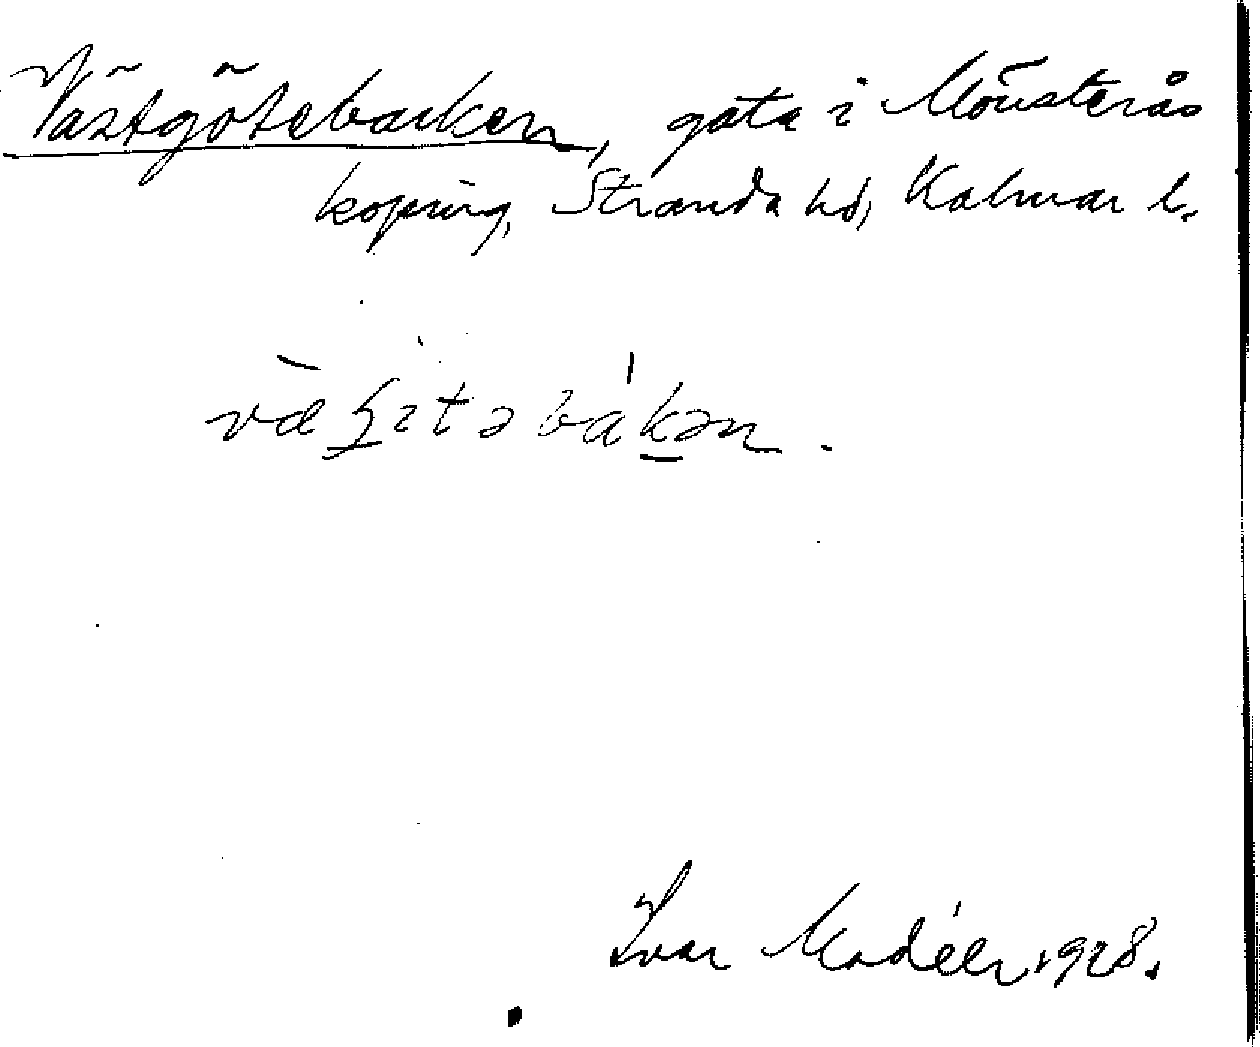 Västgötebacken, gata i Mönsterås
köping, Stranda hd, Kalmar l.
Ivar Modéer 1928.